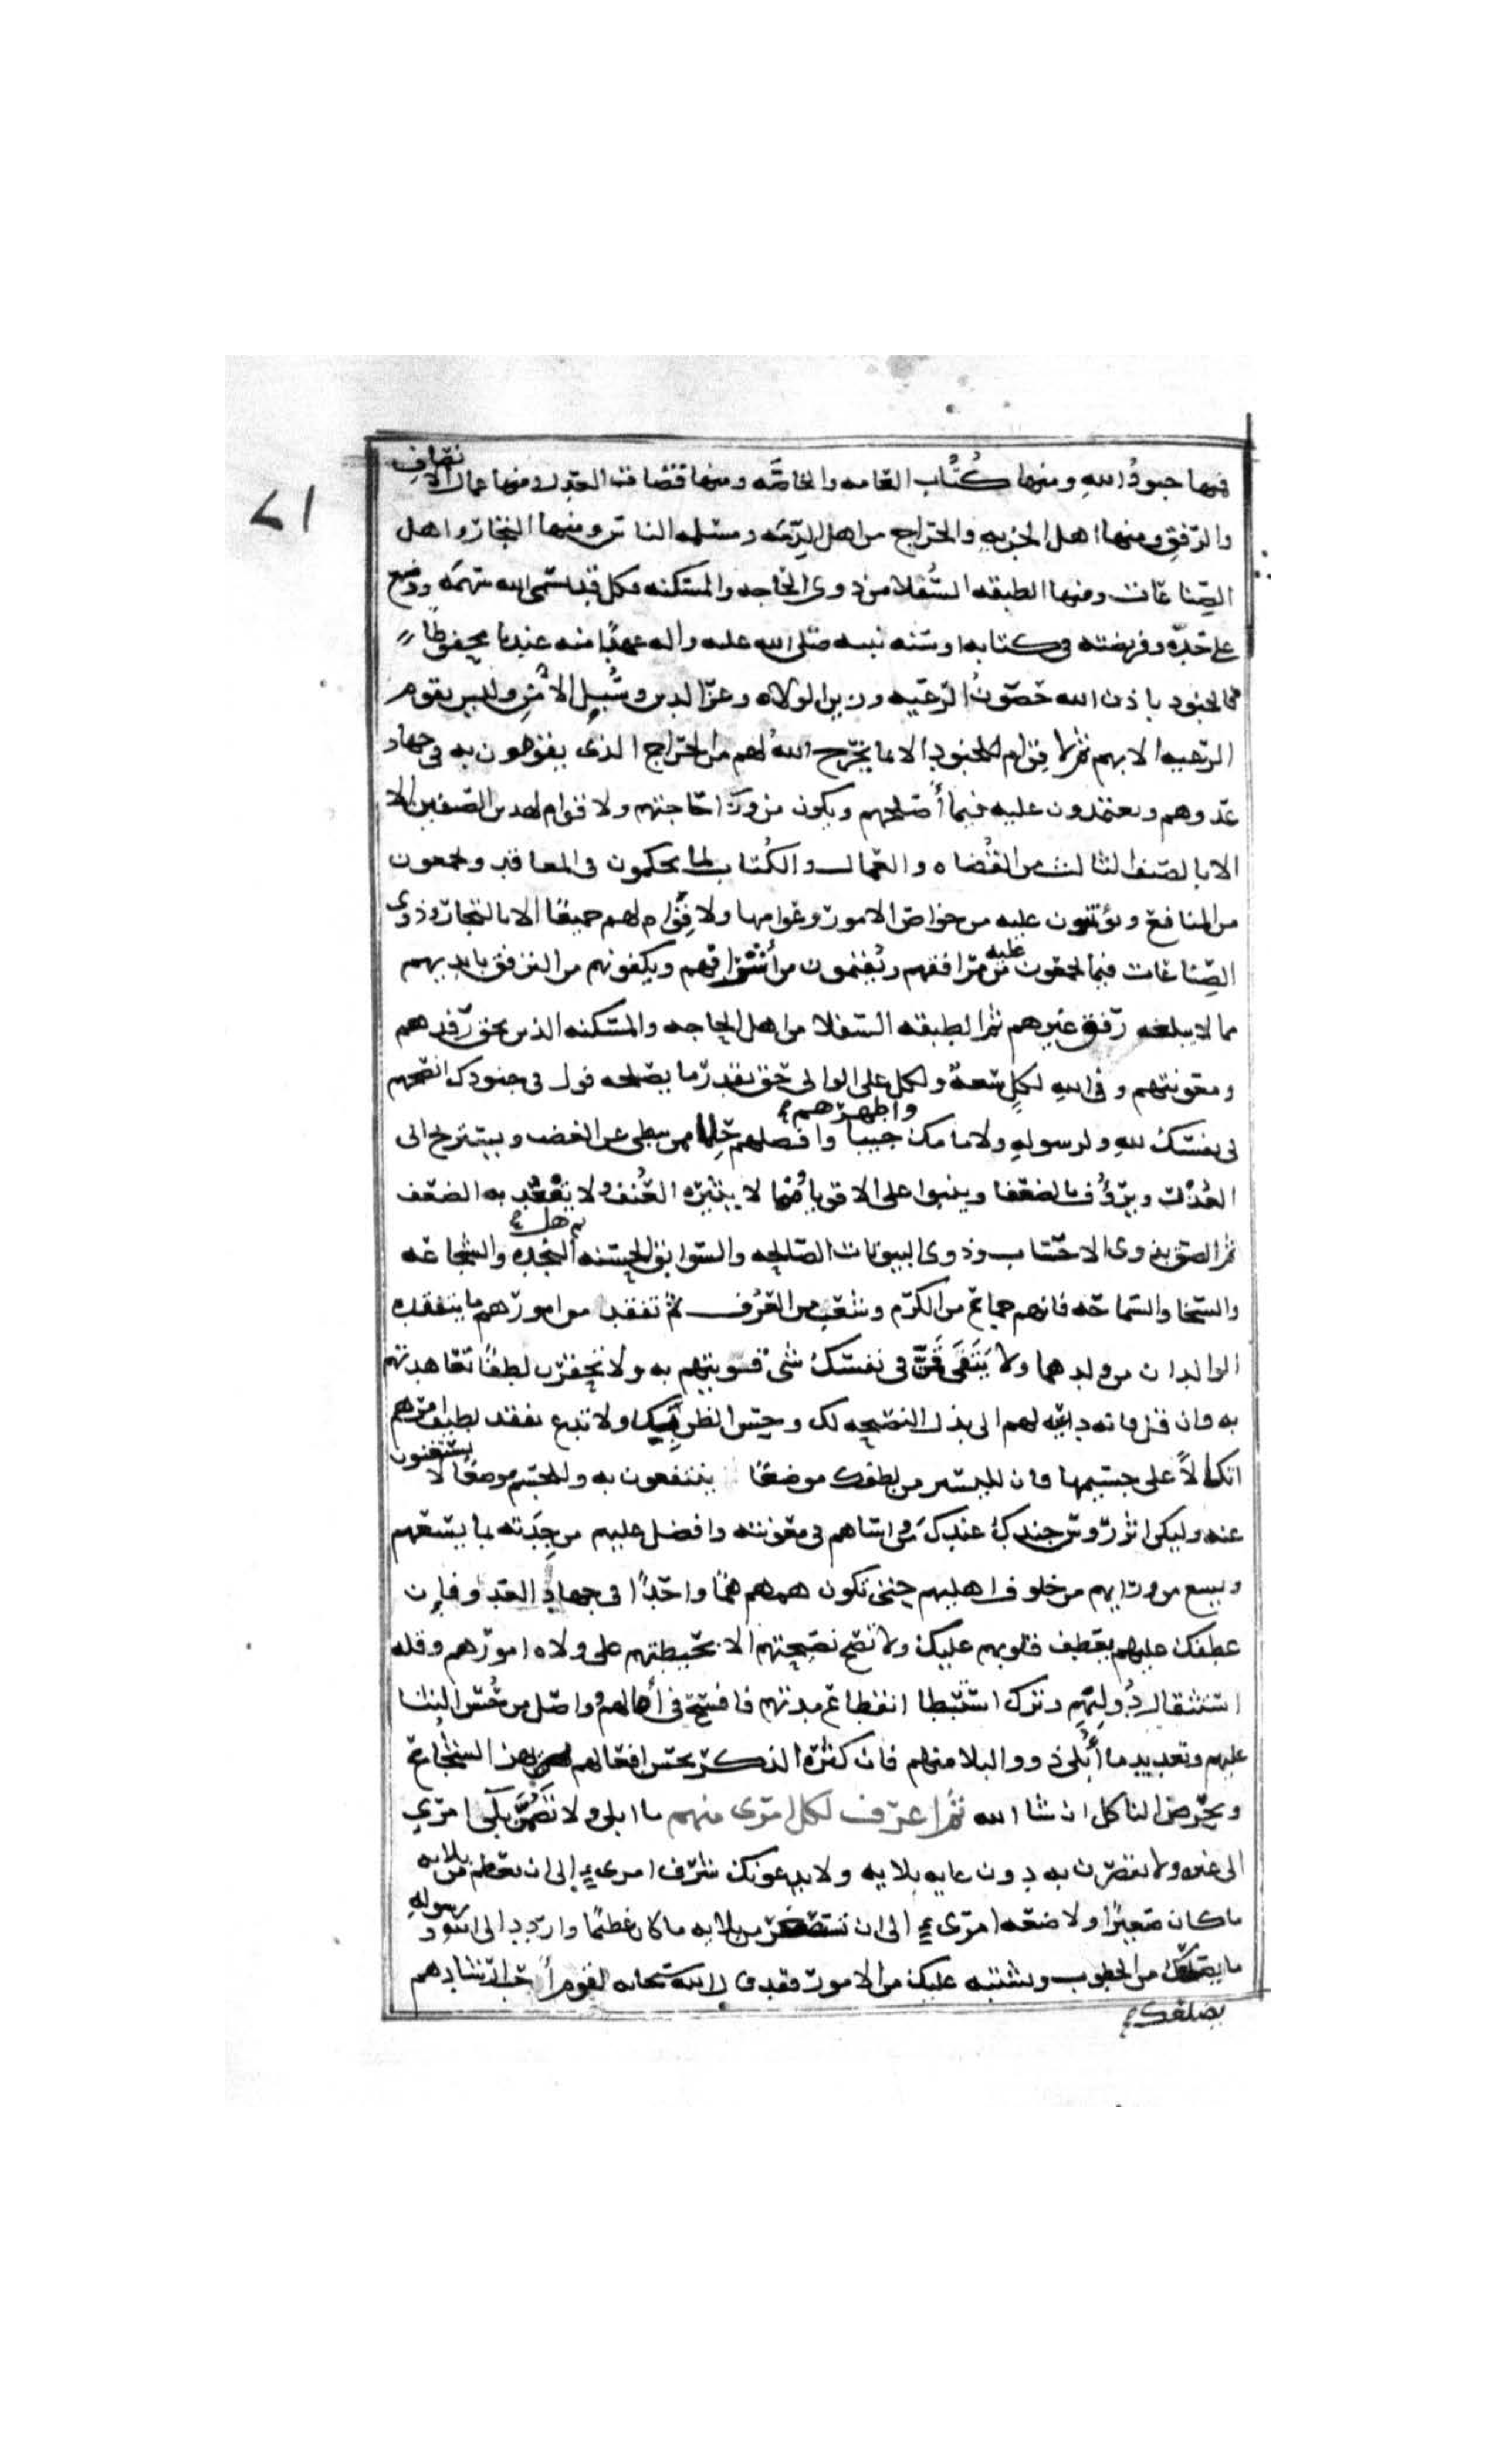 فمنها جنودُ اللهِ ومنها كُتَّاب العامه والخاصَّه ومنها قضات العدل ومنها عمال الانصاف
والرّفق ومنها اهل الجزيه والخراج من اهل الذِّمَّه ومسلمه الناس ومنها التجار واهل
الصِّناعات ومنها الطبقه السُّفلا من ذوى الحاجه والمسكنه وكل قد سمى الله سهمَه ووضع
على حدِّه وفريضته فى كتابه او سنه نبيه صلى الله عليه واله عهدًا منه عندنا محفوظًا
فالجنود باذن الله حصونُ الرّعيه وزين الولاه وعز الدين وسُبلِ الأَمنِ وليس يقوم
الرعيه الا بهم ثم لا قِوام للجنودِ الا بما يخرج اللهُ لهم من الخراج الذى يقوون به فى جهاد
عدوهم ويعتمدون عليه فيما أصلحهم ويكون من ورآ حاجتهم ولا قوام لهذين الصنفين الا
الا بالصنف الثالث من القُضاه والعمال والكُتاب لما يحكمون فى المعاقد ويجمعون
من المنافع ويؤتمنون عليه من خواص الامور وعوامها ولا قِوام لهم جميعًا الا بالتجار وذوى
الصِّناعات فيما يجمعون عليه من مرافقهم ويُقيمون من أسْواقهم ويكفونهم من الترفق بايديهم
مما لا يبلغه رفق غيرهم ثم الطبقه السفلا من اهل الحاجه والمسكنه الذين يحق رفدهم
ومعونتهم وفى اللهِ لكلٍ سَعهٌ ولكل على الوالى حق بقدر ما يصلحه فول فى جنودك انصحهم
فى نفسك للهِ ولرسولهِ ولامامك واطهرهم جيبا وافضلهم حِلمًا ممن يبطى عن الغضب ويستريح الى
العُذْر ويرؤُف بالضعفا وينبوا على الاقويا وممّا لا يثيره العُنف ولا يقعُد به الضعف
ثم الصق بذوى الاحساب وذوى البيوتات الصالحه والسوابق الحسنه ثم اهل النجده والشجاعه
والسخا والسماحه فانهم جماع من الكرم وشعب من العُرف ثم تفقد من امورهم ما يتفقده
الوالدان من ولدهما ولا يَتَفَاقَمَنَّ فى نفسك شى قويتهم به ولا تحقرن لطفًا تعاهدتهم
به وان قل فانه داعيه لهم الى بذل النصيحه لك وحسن الظن بِك ولا تدع تفقد لطيف امرهم
اتكالاً على جسيمها فان لليسير من لطفك موضعًا ينتفعون به وللجسيم موقعًا لا يستغنون
عنه وليكن اثر رؤس جندك عندك من واساهم فى معونته وافضل عليهم من جِدَته بما يسعهم
ويسع من ورايهم من خلوف اهليهم حتى تكون همهم همًّا واحدًا فى جهاد العدو فإن
عطفك عليهم يعطف قلوبهم عليك ولا تصح نصيحتهم الا بحيطتهم على ولاه امورهم وقله
استثقال دُولِهِم وترك استبطا انقطاع مدتهم فافسح فى أمالهم وواصل من حُسن الثنا
عليهم وتعديد ما أُبلى ذوو البلا منهم فان كثره الذكر بحسن افعالهم تهز الشجاع
ويحرّض الناكل ان شا الله ثم اعرف لكل امرى منهم ما ابلى ولا تضُمَّنَّ بلآ امرىٍ
الى غيره ولا تقصرن به دون غايه بلايه ولا يدعونك شرف امرىءٍ الى ان تعظم من بلايه
ما كان صغيرًا ولا ضعه امرىءٍ الى ان تستصغر من بلايه ما كان عظيمًا واردد الى الله ورسولهِ
ما يضلعك من الخطوب ويشتبه عليك من الامور فقد قال الله سبحانه لقوم أحب ارشادهم
يضلعك